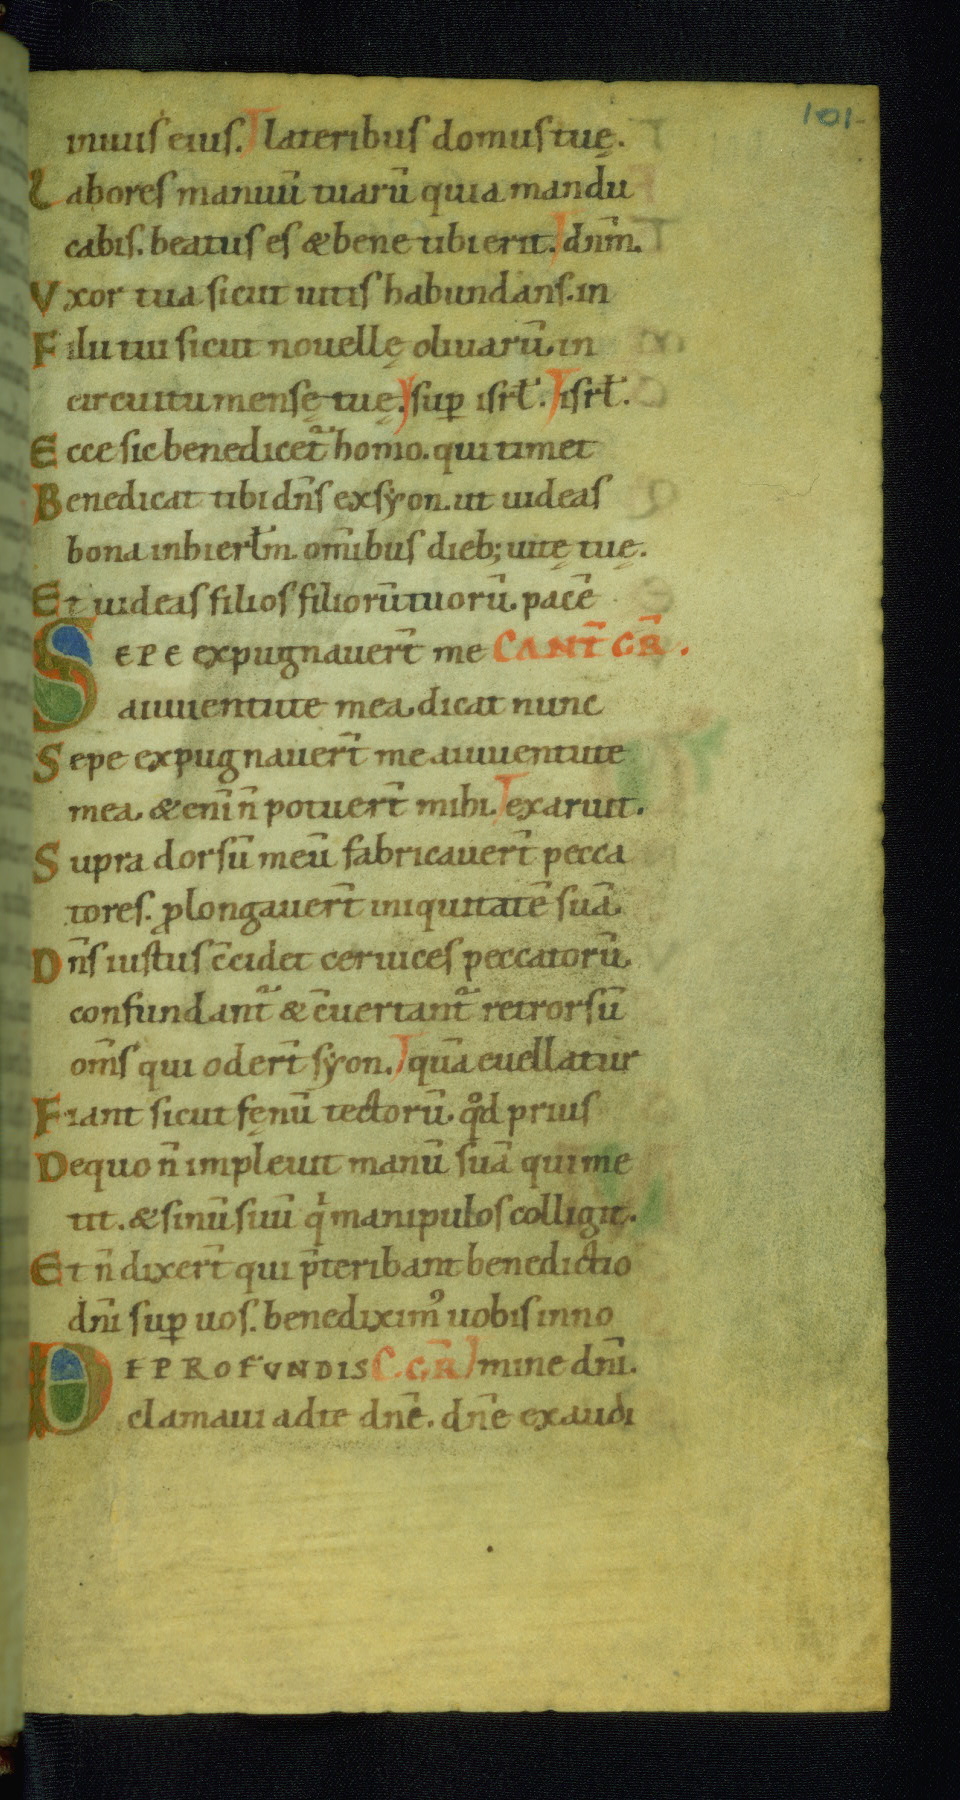 101
inuiis eius. lateribus domus tuę.
Labores manuū tuarū quia mandu
cabis. beatus es & bene tibi erit. dnm̄.
Vxor tua sicut uitis habundans. in
Filii tui sicut nouellę oliuarū. in
circuitu mensę tuę. sup̄ isrł. isrł.
Ecce sic benedicet̄ homo. qui timet
Benedicat tibi dn̄s ex sẏon. ut uideas
bona in hierłm. om̄ibus dieb; uitę tuę.
Et uideas filios filiorū tuorū. pacē
SEPE expugnauert̄ me CANT̄ GR̄.
a iuuentute mea. dicat nunc
Sepe expugnauert̄ me a iuuentute
mea. & eni n̄ potuert̄ mihi. exaruit.
Supra dorsū meū fabricauert̄ pecca
tores. ꝓlongauert̄ iniquitatē suā.
Dn̄s iustus c̄cidet ceruices peccatorū.
confundant̄ & c̄uertant̄ retrorsū
om̄s qui odert̄ sẏon. quā euellatur
Fiant sicut fęnū tectorū. qd̊ prius
De quo n̄ impleuit manū suā qui me
tit. & sinū suū qͥ manipulos colligit.
Et n̄ dixert̄ qui p̄teribant benedictio
dnī sup̄ uos. benediximꝰ uobis in no
DE PROFUNDIS C. GR̄ mine dnī.
clamaui ad te dnē. dnē exaudi